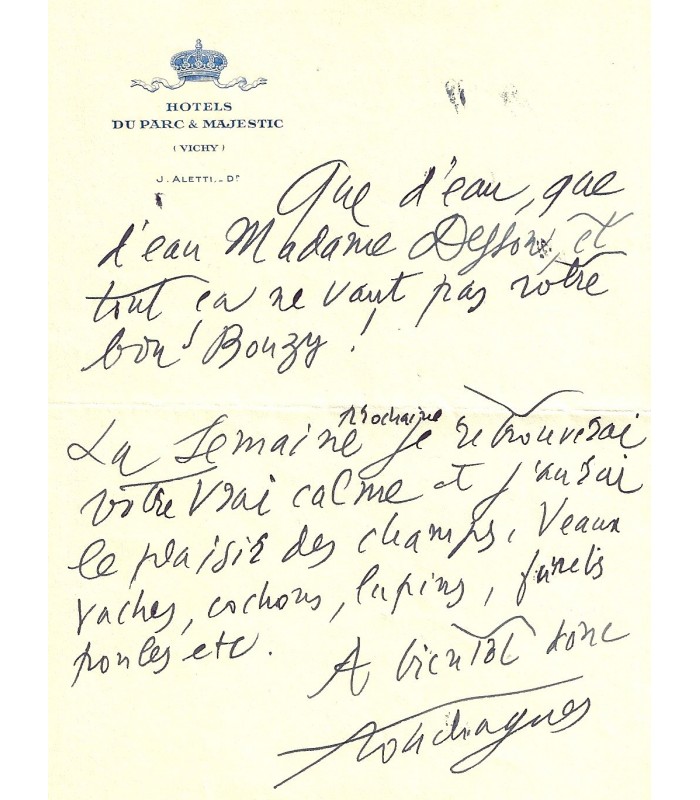 HOTELS
DU PARC & MAJESTIC
(VICHY)
J. ALETTI, Dr
Que d'eau, que
d'eau Madame et
tout ça ne vaut pas votre
bon Bouzy !
La Semaine prochaine je retrouverai
votre vrai calme et j'aurai
le plaisir des champs, Veaux
vaches, cochons, lapins, furets
poules etc.
A bientôt donc